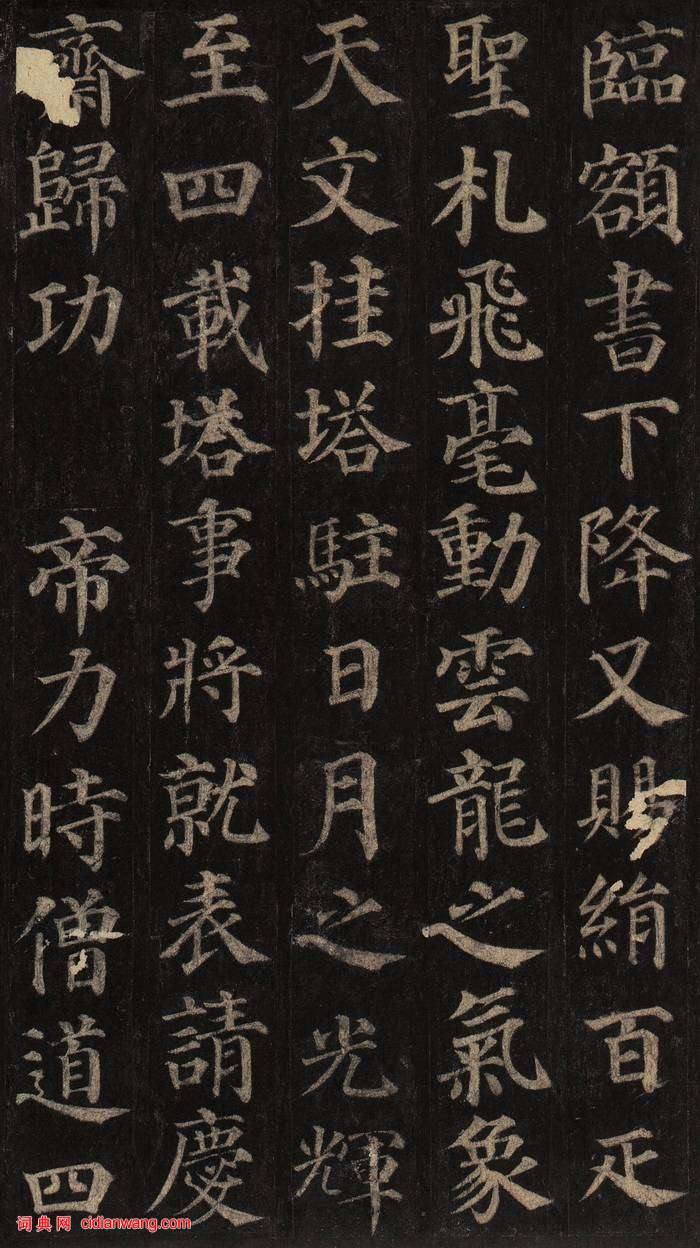 臨額書下降又賜絹百疋
聖札飛毫動雲龍之氣象
天文挂塔駐日月之光輝
至四載塔事將就表請慶
齋歸功 帝力時僧道四
词典网 cidianwang.com